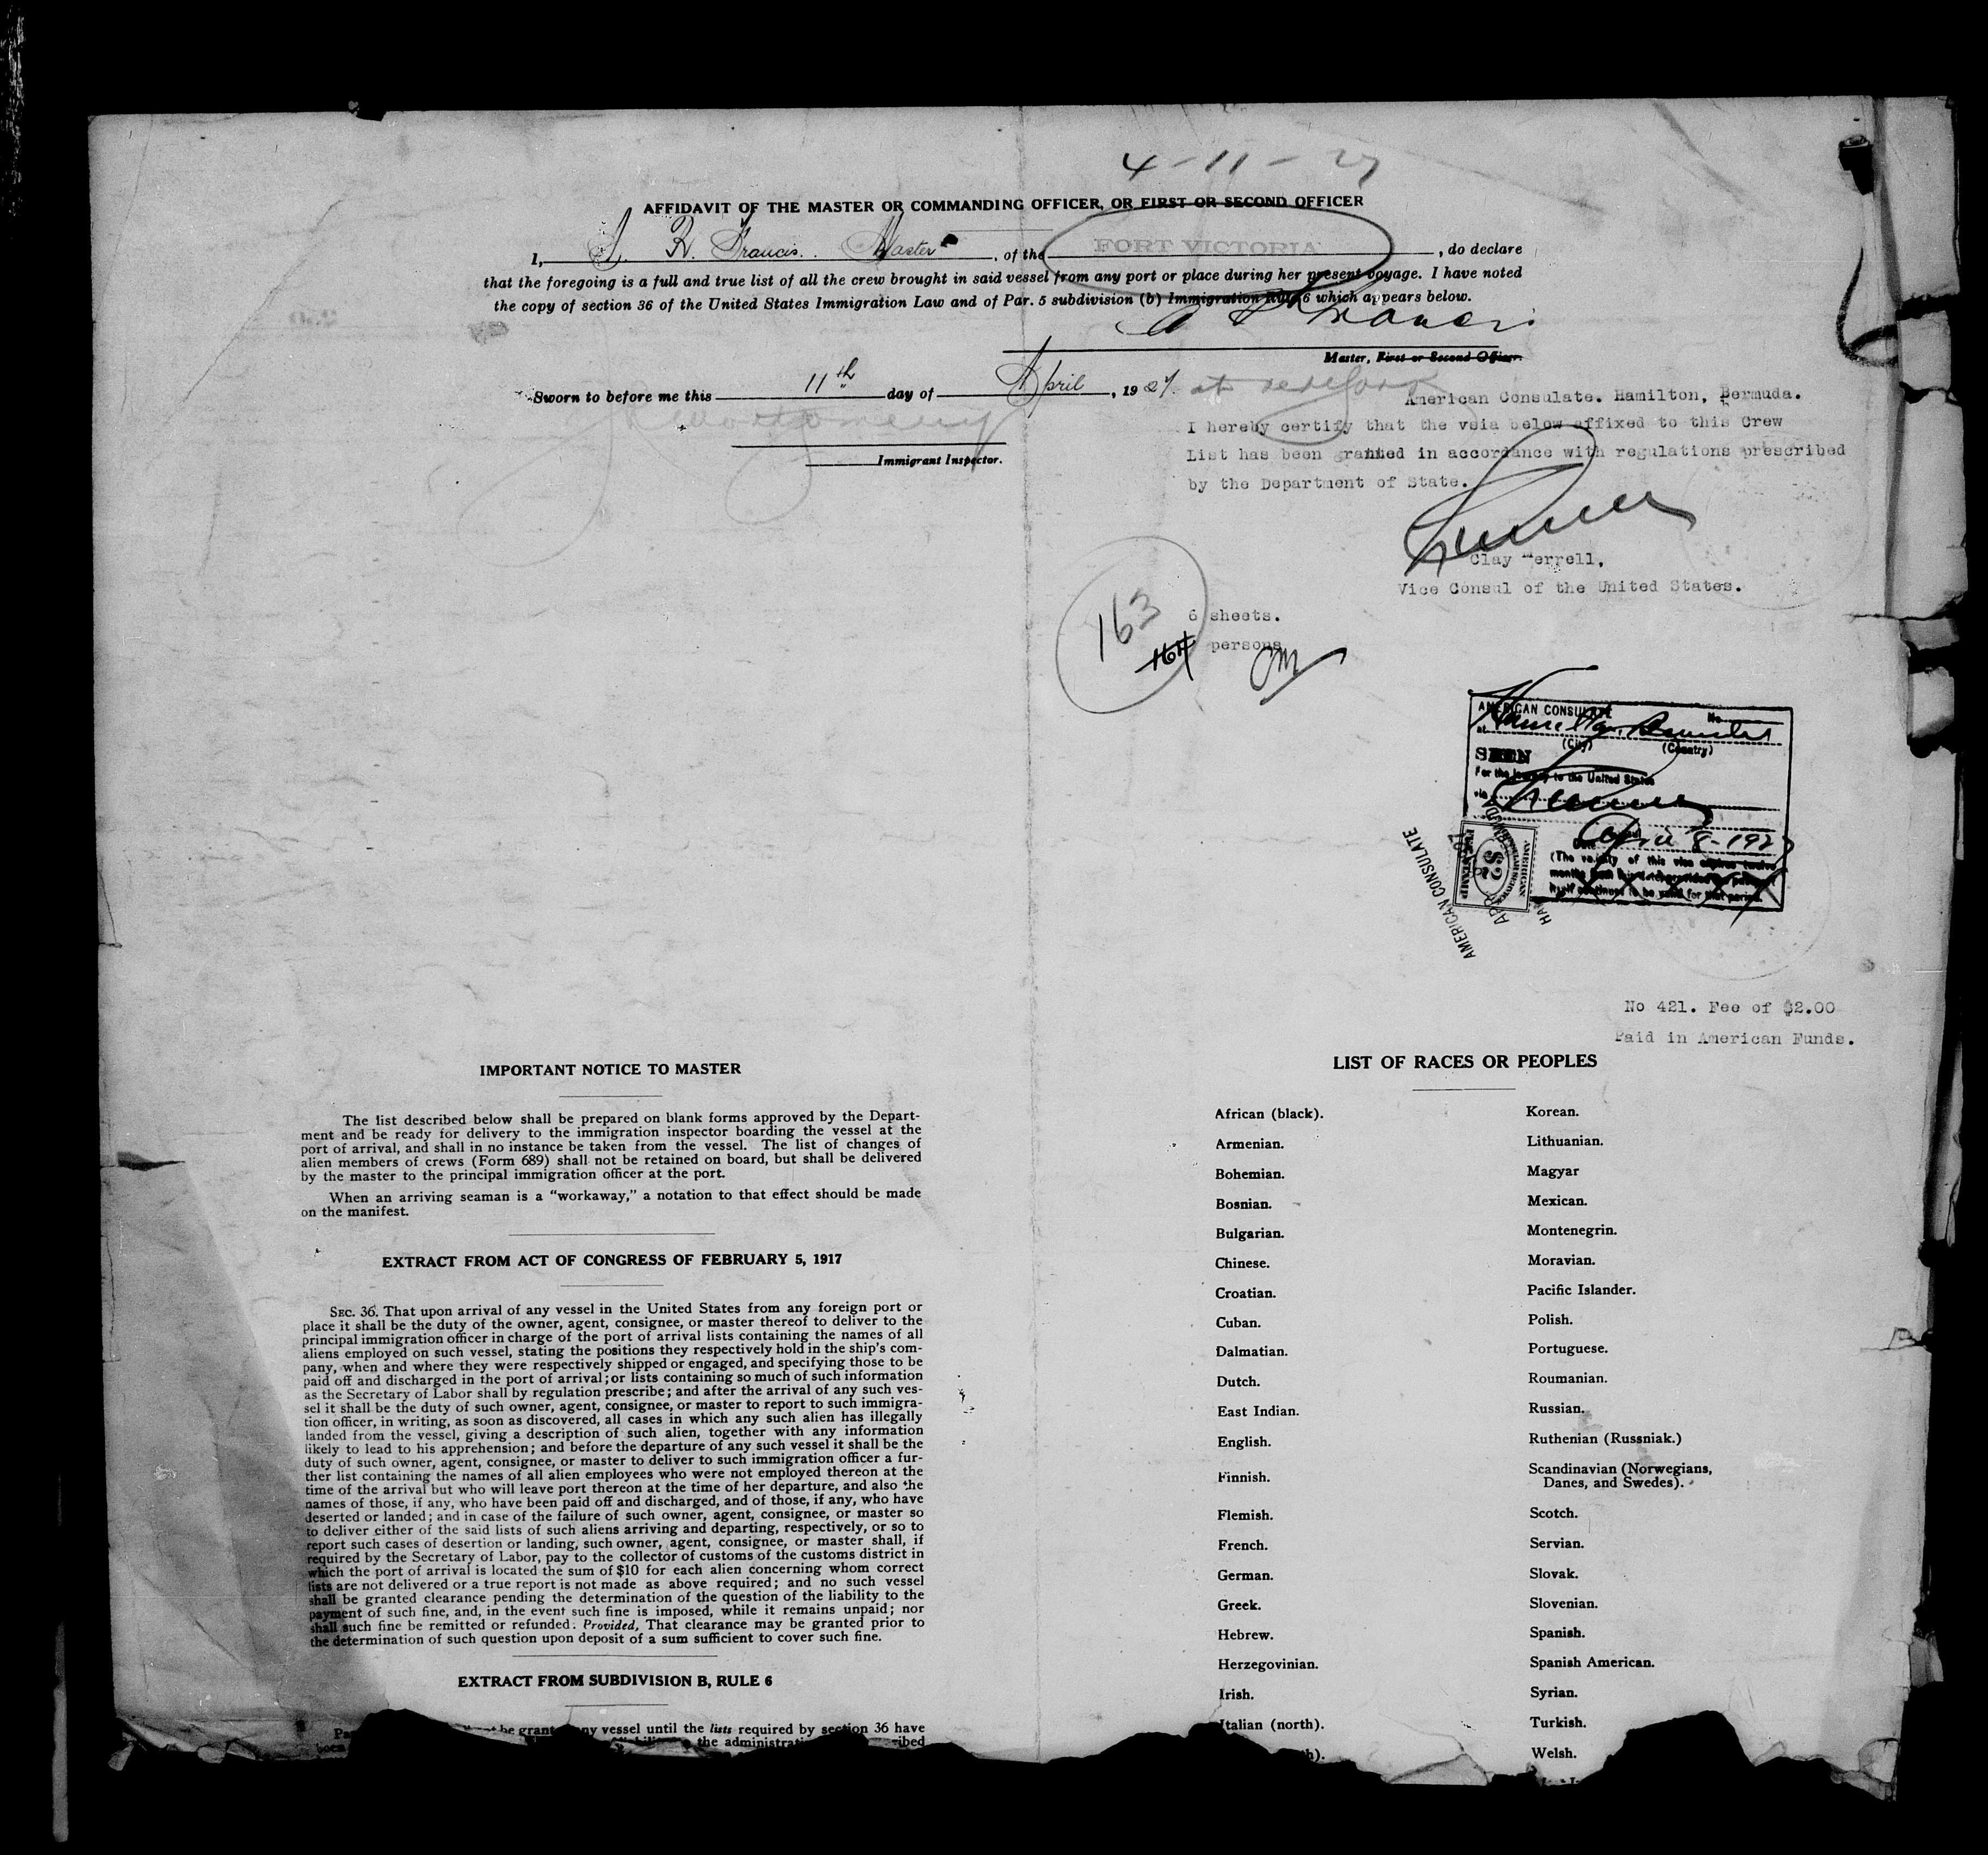 4-11-27
AFFIDAVIT OF THE MASTER OR COMMANDING OFFICER, OR FIRST OR SECOND OFFICER
I, A. R. Francis. Master, of the FORT VICTORIA, do declare
that the foregoing is a full and true list of all the crew brought in said vessel from any port or place during her present voyage. I have noted
the copy of section 36 of the United States Immigration Law and of Par. 5 subdivision (b) Immigration Rule 6 which appears below.
A R Francis
Master, First or Second Officer.
Sworn to before me this 11th day of April, 1927. at New York
Montgomery
Immigrant Inspector.
American Consulate. Hamilton, Bermuda.
I hereby certify that the vsia below affixed to this Crew
List has been granted in accordance with regulations prescribed
by the Department of State.
Clay Merrell,
Vice Consul of the United States.
163
6 sheets.
164 persons
AMERICAN CONSULATE No
at Hamilton, Bermuda
(City) (Country)
SEEN
For the journey to the United States
via
Date April 8-1927
(The validity of this visa expires twelve
months from this date provided the passport
itself continues to be valid for that period.
AMERICAN
$2
FEE STAMP
AMERICAN CONSULATE
APR
No 421. Fee of $2.00
Paid in American Funds.
IMPORTANT NOTICE TO MASTER
The list described below shall be prepared on blank forms approved by the Depart-
ment and be ready for delivery to the immigration inspector boarding the vessel at the
port of arrival, and shall in no instance be taken from the vessel. The list of changes of
alien members of crews (Form 689) shall not be retained on board, but shall be delivered
by the master to the principal immigration officer at the port.
When an arriving seaman is a "workaway," a notation to that effect should be made
on the manifest.
EXTRACT FROM ACT OF CONGRESS OF FEBRUARY 5, 1917
SEC. 36. That upon arrival of any vessel in the United States from any foreign port or
place it shall be the duty of the owner, agent, consignee, or master thereof to deliver to the
principal immigration officer in charge of the port of arrival lists containing the names of all
aliens employed on such vessel, stating the positions they respectively hold in the ship's com-
pany, when and where they were respectively shipped or engaged, and specifying those to be
paid off and discharged in the port of arrival; or lists containing so much of such information
as the Secretary of Labor shall by regulation prescribe; and after the arrival of any such ves-
sel it shall be the duty of such owner, agent, consignee, or master to report to such immigra-
tion officer, in writing, as soon as discovered, all cases in which any such alien has illegally
landed from the vessel, giving a description of such alien, together with any information
likely to lead to his apprehension; and before the departure of any such vessel it shall be the
duty of such owner, agent, consignee, or master to deliver to such immigration officer a fur-
ther list containing the names of all alien employees who were not employed thereon at the
time of the arrival but who will leave port thereon at the time of her departure, and also the
names of those, if any, who have been paid off and discharged, and of those, if any, who have
deserted or landed; and in case of the failure of such owner, agent, consignee, or master so
to deliver either of the said lists of such aliens arriving and departing, respectively, or so to
report such cases of desertion or landing, such owner, agent, consignee, or master shall, if
required by the Secretary of Labor, pay to the collector of customs of the customs district in
which the port of arrival is located the sum of $10 for each alien concerning whom correct
lists are not delivered or a true report is not made as above required; and no such vessel
shall be granted clearance pending the determination of the question of the liability to the
payment of such fine, and, in the event such fine is imposed, while it remains unpaid; nor
shall such fine be remitted or refunded: Provided, That clearance may be granted prior to
the determination of such question upon deposit of a sum sufficient to cover such fine.
EXTRACT FROM SUBDIVISION B, RULE 6
be grant ny vessel until the lists required by section 36 have
been the administrati ribed
LIST OF RACES OR PEOPLES
African (black).
Armenian.
Bohemian.
Bosnian.
Bulgarian.
Chinese.
Croatian.
Cuban.
Dalmatian.
Dutch.
East Indian.
English.
Finnish.
Flemish.
French.
German.
Greek.
Hebrew.
Herzegovinian.
Irish.
Italian (north).
Korean.
Lithuanian.
Magyar
Mexican.
Montenegrin.
Moravian.
Pacific Islander.
Polish.
Portuguese.
Roumanian.
Russian.
Ruthenian (Russniak.)
Scandinavian (Norwegians,
Danes, and Swedes).
Scotch.
Servian.
Slovak.
Slovenian.
Spanish.
Spanish American.
Syrian.
Turkish.
Welsh.